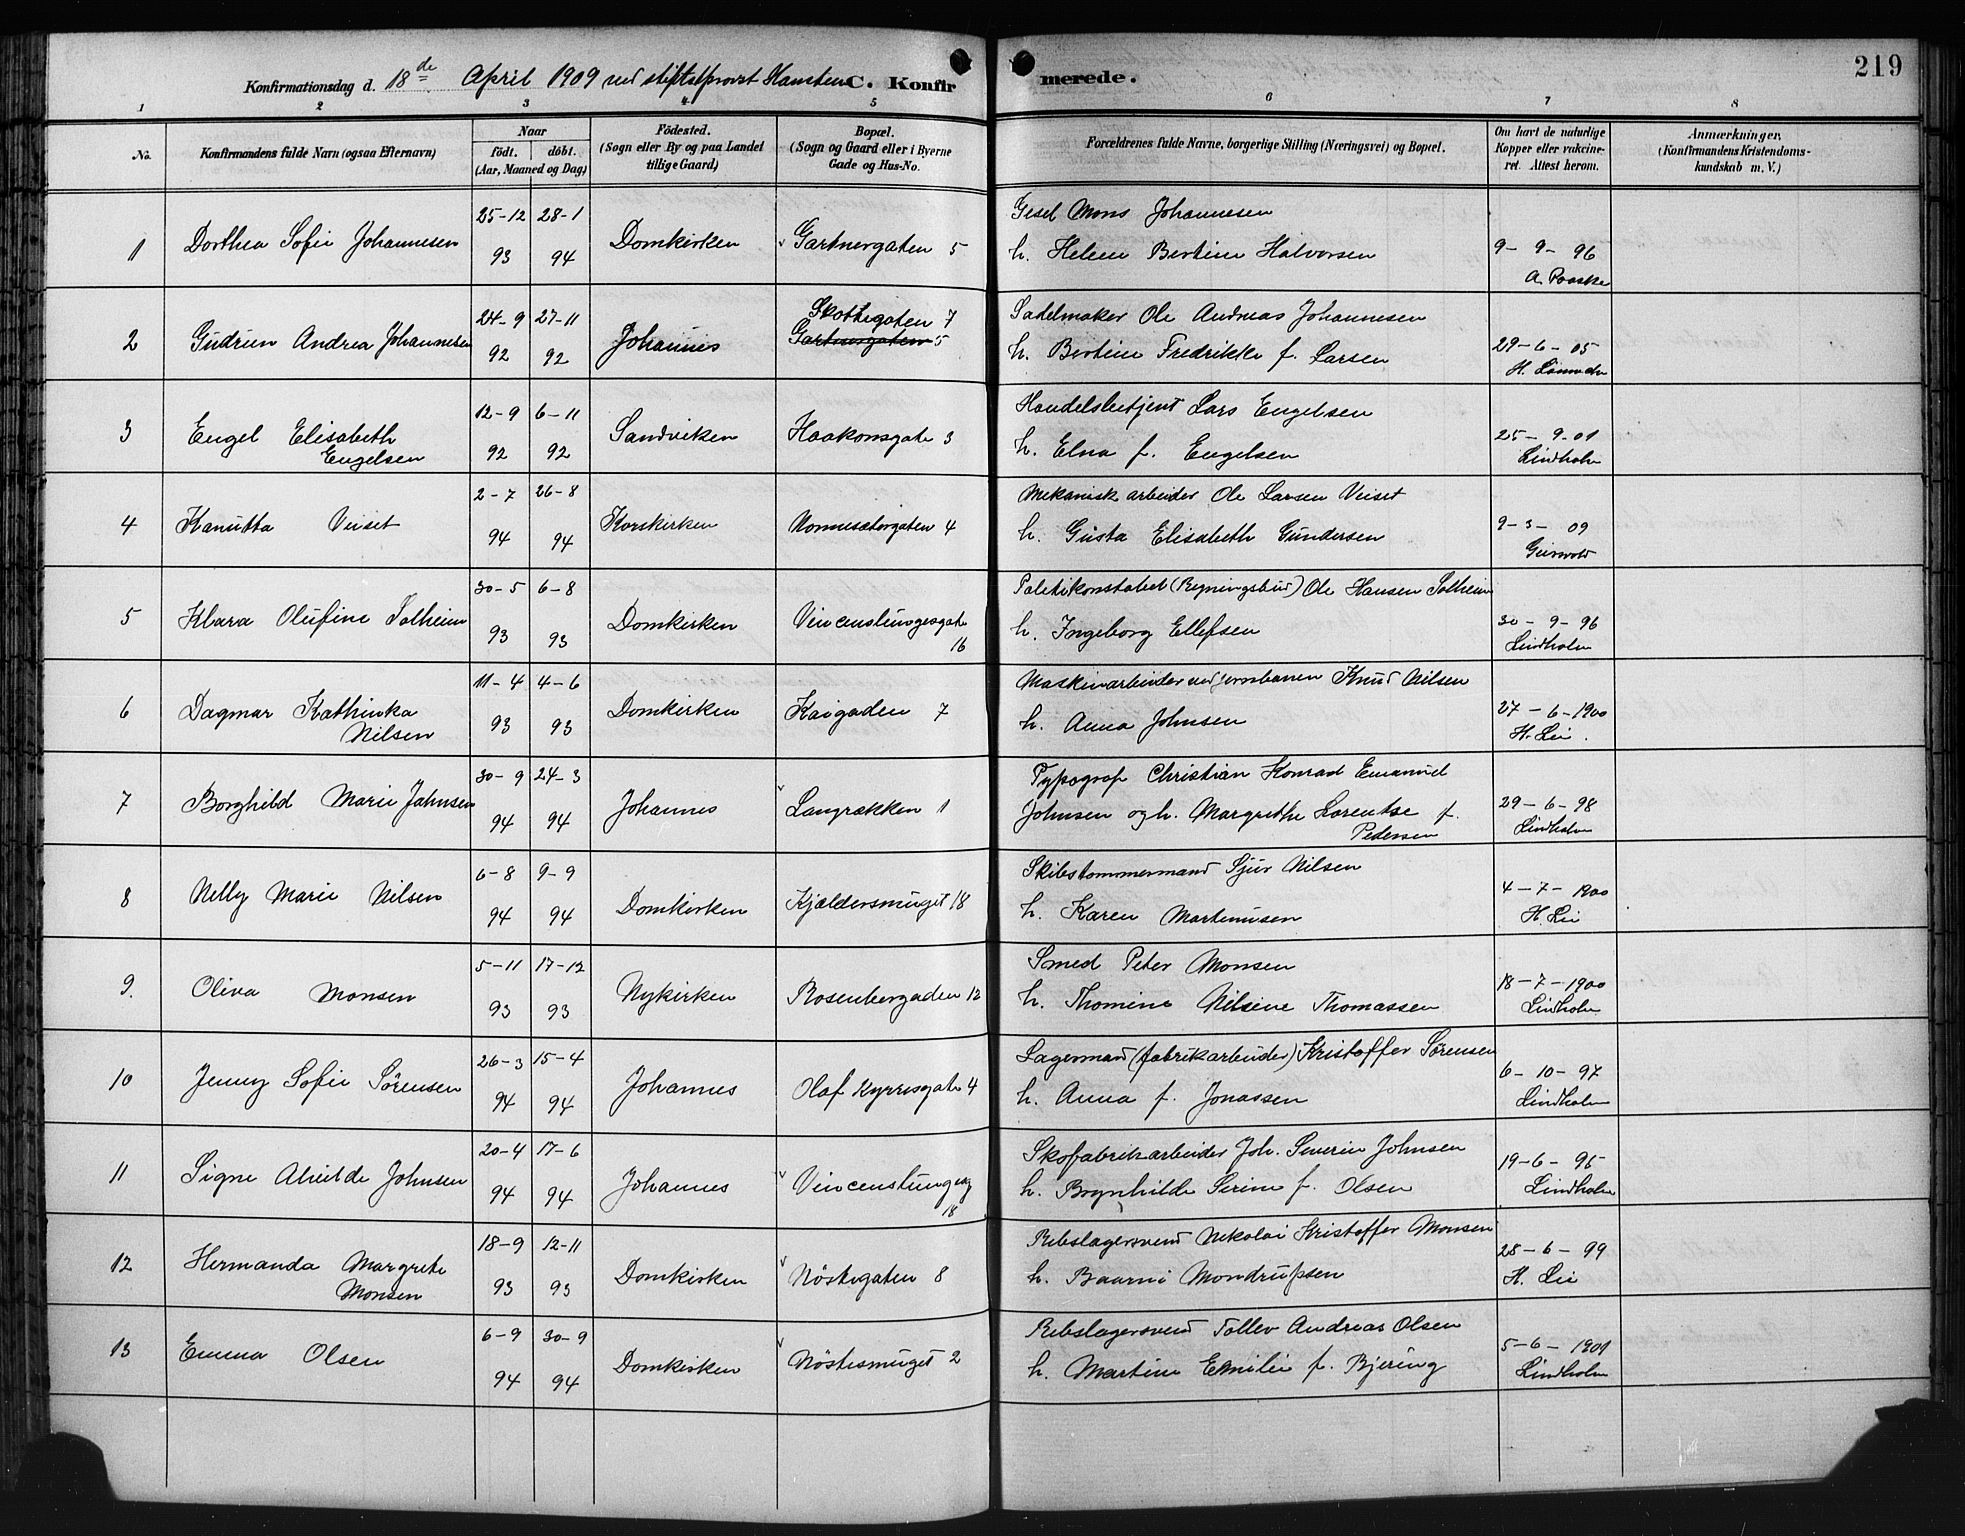 219
Konfirmationsdag d. 18de April 1909 ved stiftsprovst Hansteen C. Konfirmerede.
1 2 3 4 5 6 7 8
No.
Konfirmandens fulde Navn (ogsaa Efternavn)
Naar
födt. döbt.
(Aar, Maaned og Dag)
Födested.
(Sogn eller By og paa Landet
tillige Gaard)
Bopæl.
(Sogn og Gaard eller i Byerne
Gade og Hus-No.
Forældrenes fulde Navne, borgerlige Stilling (Næringsvei) og Bopæl.
Om havt de naturlige
Kopper eller vakcine-
ret. Attest herom.
Anmærkninger.
(Konfirmandens Kristendoms-
kundskab m. V.)
25-12 28-1 Gesel Mons Johannesen
1 Dorthea Sofie Johannesen 93 94 Domkirken v Gartnergaten 5 h. Helene Bertine Halvorsen 9-9-96
A. Paaske
24-9 27-11 Skottegaten 7 Sadelmaker Ole Andreas Johannesen
2 Gudrun Andrea Johannesen 92 92 Johannes Gartnergaten 5 h. Bertine Fredrikke f. Larsen 29-6-05
H.
12-9 6-11 Handelsbetjent Lars Engelsen
3 Engel Elisabeth 92 92 Sandviken Haakonsgate 3 h. Elna f. Engelsen 25-9-01
Engelsen Lindholm
2-7 26-8 Mekanisk arbeider Ole Larsen Veiset
4 Kanutta Veiset 94 94 Korskirken Nonnesætergaten 4 h. Gusta Elisabeth Gundersen 9-3-09
30-5 6-8 Politikonstabel (Regningsbud) Ole Hansen Solheim
5 Klara Olufine Solheim 93 93 Domkirken Vincenslungesgate h. Ingeborg Ellefsen 30-9-96
16 Lindholm
11-4 4-6 Maskinarbeider ved jernbanen Knud Nilsen
6 Dagmar Kathinka 93 93 Domkirken Kaigaden 7 h. Anna Johnsen 27-6-1900
Nilsen H. Lie.
30-9 24-3 Typograf Christian Konrad Emanuel
7 Borghild Marie Johnsen 94 94 Johannes v Langrækken 1 Johnsen og h. Margrethe Lorentse f. 29-6-98
Pedersen Lindholm
6-8 9-9 Skibstømmermand Sjur Nilsen
8 Nelly Marie Nilsen 94 94 Domkirken Kjældersmuget 18 h. Karen Martinusen 4-7-1900
H. Lie
5-11 17-12 Smed Peter Monsen
9. Oliva Monsen 93 93 Nykirken Rosenbergaden 12 h. Thomine Nilsine Thomassen 18-7-1900
Lindholm
26-3 15-4 Lagermand (fabrikarbeider) Kristoffer Sørensen
10 Jenny Sofie Sörensen 94 94 Johannes Olaf Kyrresgate 4 h. Anna f. Jonassen 6-10-97
Lindholm
20-4 17-6 Skofabrikarbeider Joh. Severin Johnsen
11 Signe Alvilde Johnsen 94 94 Johannes v Vincenslungesg h. Brynhilde Serine f. Olsen 19-6-95
18 Lindholm
18-9 12-11 Rebslagersvend Nikolai Kristoffer Monsen
12 Hermanda Margrete 93 93 Domkirken v Nöstegaten 8 h. Mondrupsen 28-6-99
Monsen H. Lie
6-9 30-9 Rebslagersvend Tollev Andreas Olsen
13 Emma Olsen 94 94 Domkirken v Nöstesmuget 2 h. Martine Emilie f. Bjering 5-6-1901
Lindholm